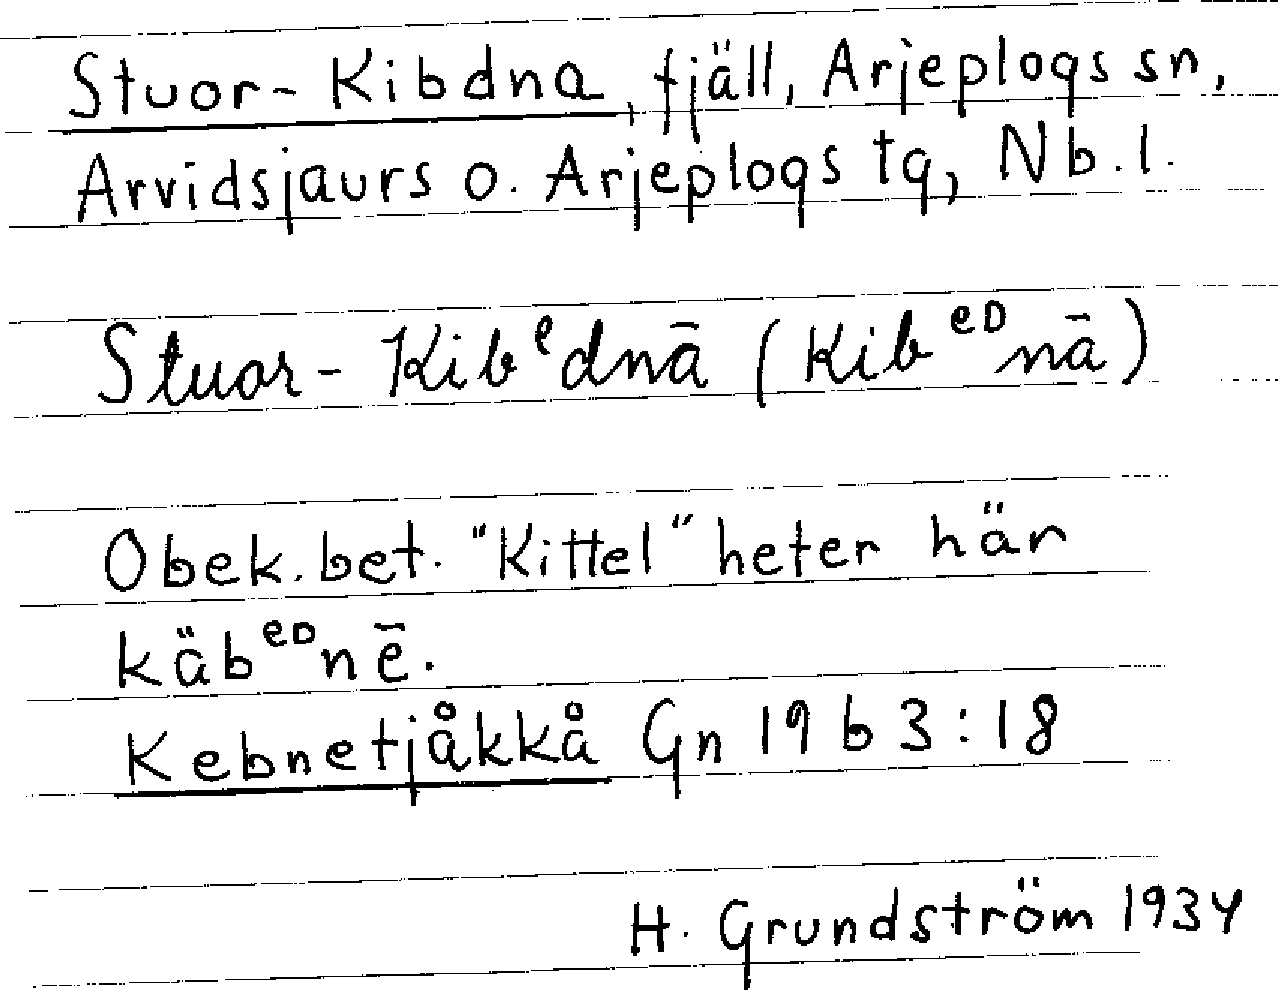 Stuor-Kibdna, fjäll, Arjeplogs sn,
Arvidsjaurs o. Arjeplogs tg, Nb.l.
Stuor-Kibᵉdnā (Kibᵉᴰnā)
Obek. bet. "Kittel" heter här
käbᵉᴰnē.
Kebnetjåkkå Gn 19 b 3:18
H. Grundström 1934